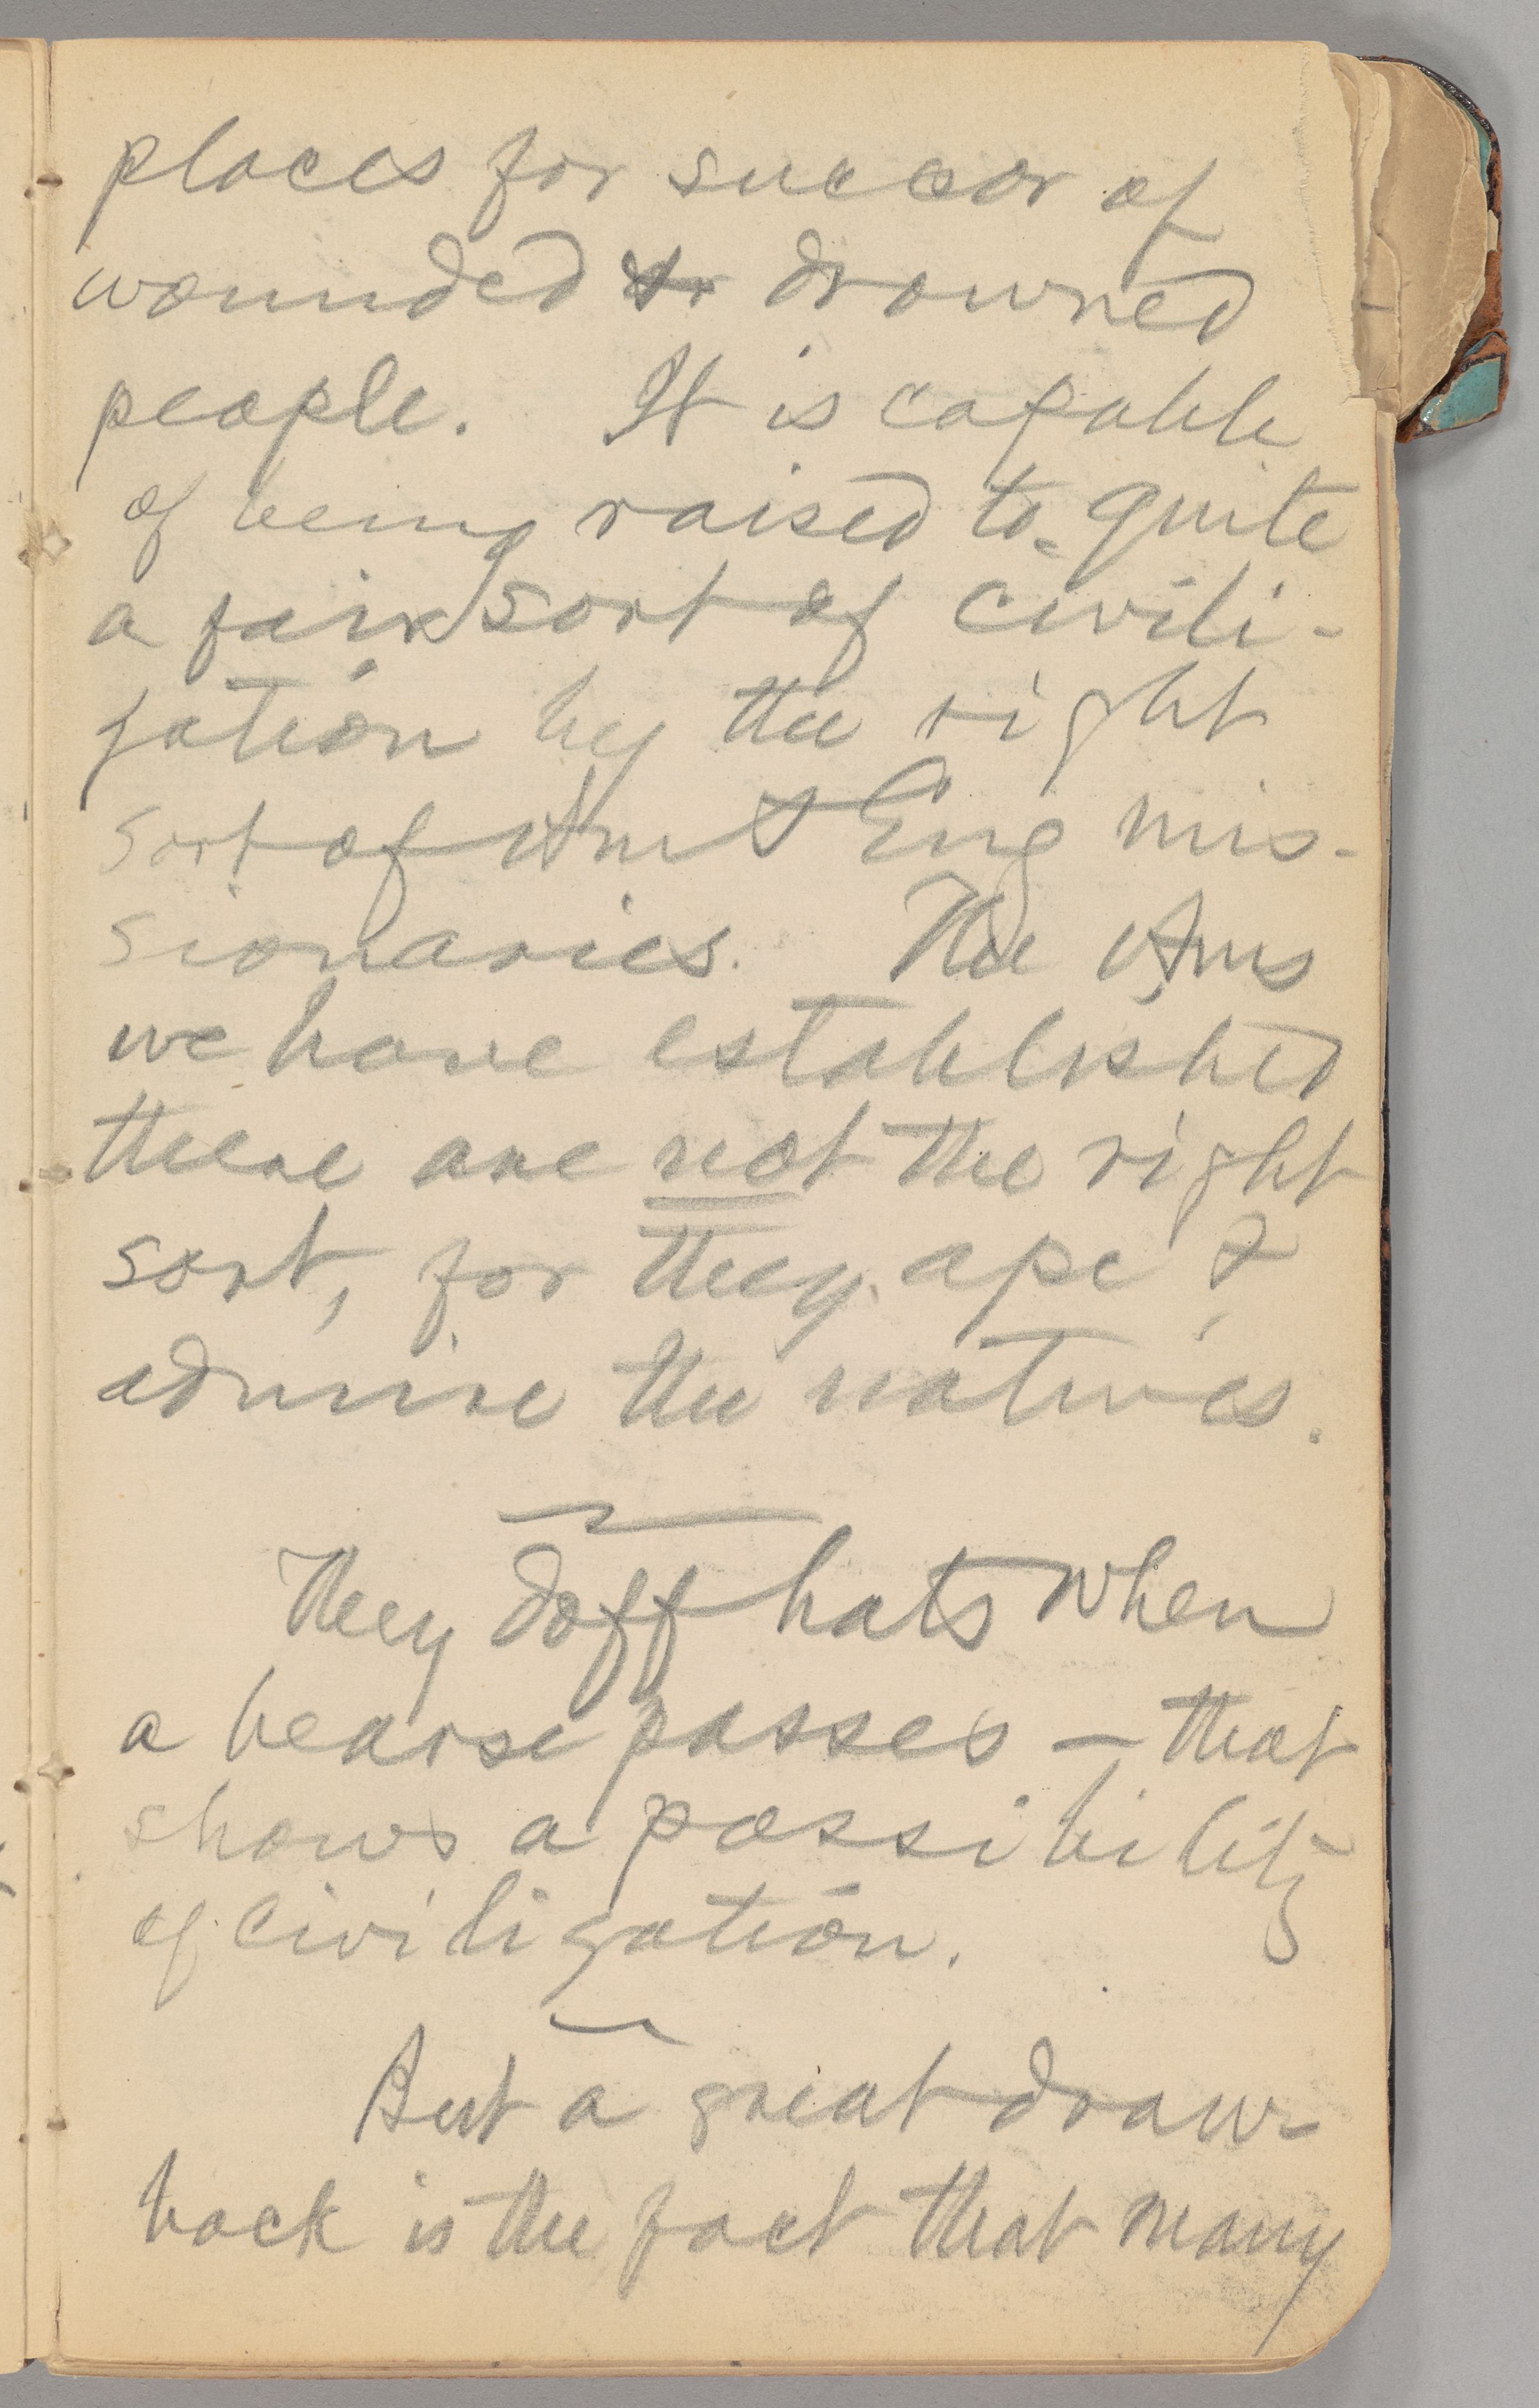 places for succor of
wounded & drowned
people. It is capable
of being raised to quite
a fair sort of civili-
zation by the right
sort of Am & Eng mis-
sionaries. The Ams
we have established
there are not the right
sort, for they ape &
admire the natives.
They doff hats when
a hearse passes — that
shows a possibility
of civilization.
But a great draw-
back is the fact that many